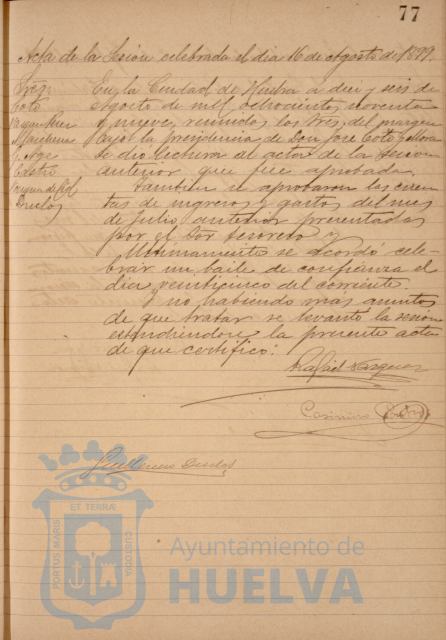 77
Acta de la Sesion celebrada el dia 16 de Agosto de 1899.
Sres
Coto
Vazquez
Marchena
y Arge
Castro
Duclós
En la Ciudad de Huelva a diez y seis de
Agosto de mil ochocientos noventa
y nueve, reunidos los Sres del margen
bajo la presidencia de Don José Coto y Mora
se dió lectura al acta de la Sesion
anterior que fué aprobada.
Tambien se aprobaron las cuen-
tas de ingresos y gastos del mes
de Julio anterior presentadas
por el Sor Tesorero y
Ultimamente se acordó cele-
brar un baile de confianza el
dia veinticinco del corriente.
Y no habiendo mas asuntos
de que tratar se levantó la sesion
estendiendose la presente acta
de que certifico.
Rafael Vazquez
Casimiro Castro
Guillermo Duclós
PORTUS MARIS ET TERRÆ CUSTODIA
Ayuntamiento de
HUELVA